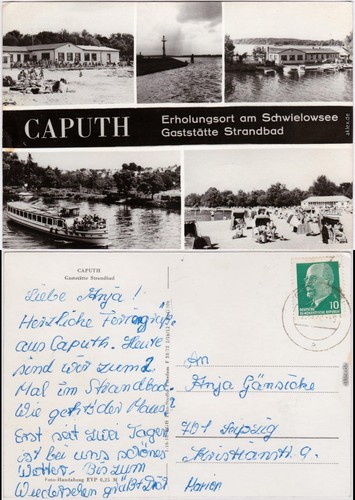 CAPUTH
Erholungsort am Schwielowsee
Gaststätte Strandbad
CAPUTH
Gaststätte Strandbad
Liebe Anja!
Herzliche Feriengrüße
aus Caputh. Heute
sind wir zum 2.
Mal im Strandbad.
Wie geht's der Maus?
Erst seit zwei Tagen
ist bei uns schönes
Wetter. Bis zum
Wiedersehen grüßt Dich
Marion
Foto-Handabzug EVP 0,25 M
10
DEUTSCHE
DEMOKRATISCHE REPUBLIK
An
Anja Gänsicke
701 Leipzig
Christianstr. 9